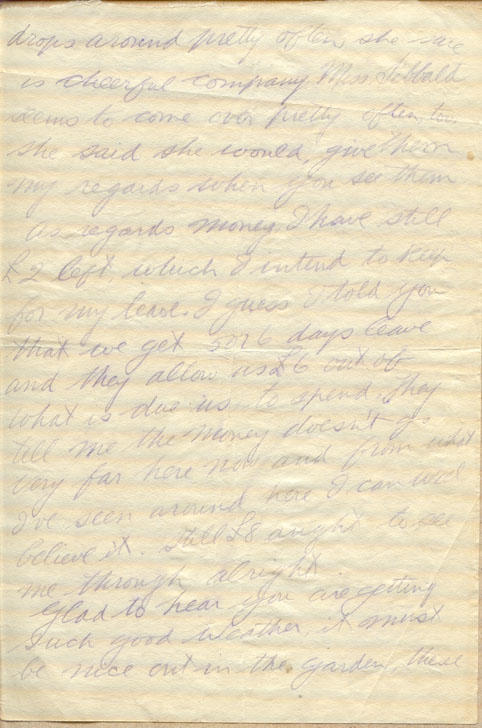 drops around pretty often, she sure
is cheerful company. Miss Sibbald
seems to come over pretty often, too,
she said she would, give them
my regards when you see them
As regards money, I have still
£2 left, which I intend to keep
for my leave. I guess I told you
that we get 5 or 6 days leave
and they allow us £6 out of
what is due us to spend. They
tell me the money doesn't go
very far here now and from what
I've seen around here I can well
believe it. Still £8 aught to see
me through alright.
Glad to hear you are getting
such good weather, it must
be nice out in the garden, these